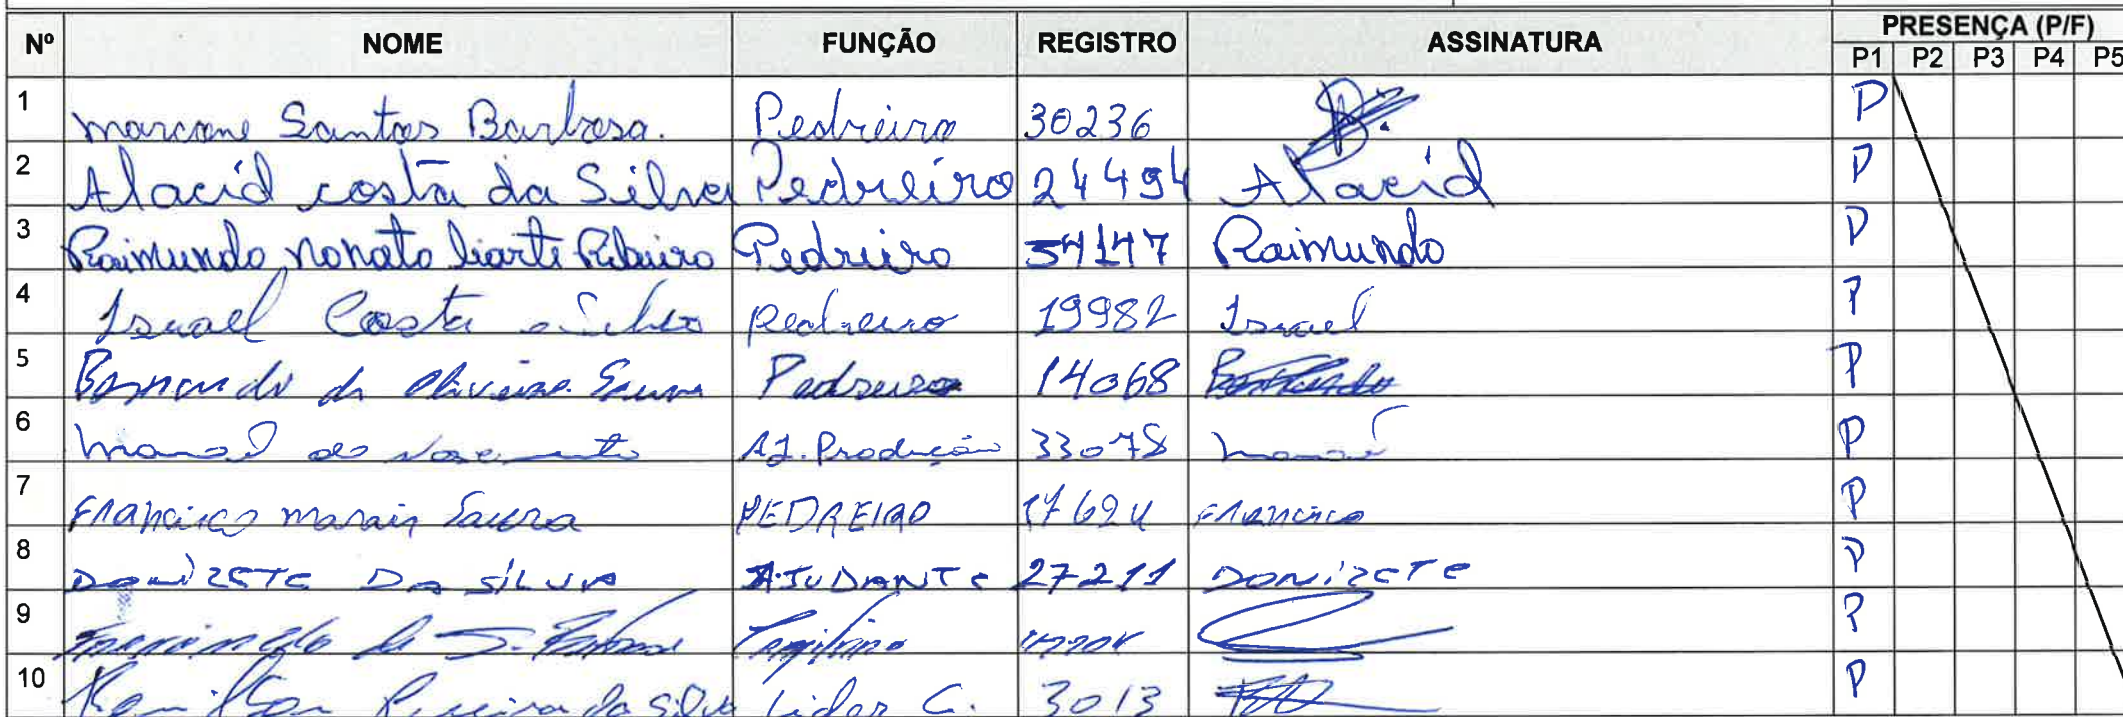 Nº NOME FUNÇÃO REGISTRO ASSINATURA PRESENÇA (P/F)
P1 P2 P3 P4 P5
1 Marcone Santos Barbosa. Pedreiro 30236 P
2 Alacid costa da Silva Pedreiro 24494 Alacid P
3 Raimundo nonato liarte Ribeiro Pedreiro 54147 Raimundo P
4 Israel Costa e Silva pedreiro 19982 Israel P
5 de Oliveira Pedreiro 14068 P
6 do Nascimento AJ. Produção 33078 P
7 Francisco morais PEDREIRO Francisco P
8 DONIZETE DA SILVA AJUDANTE 27211 DONIZETE P
9 P
10 Pereira da Silva Lider C. 3013 P